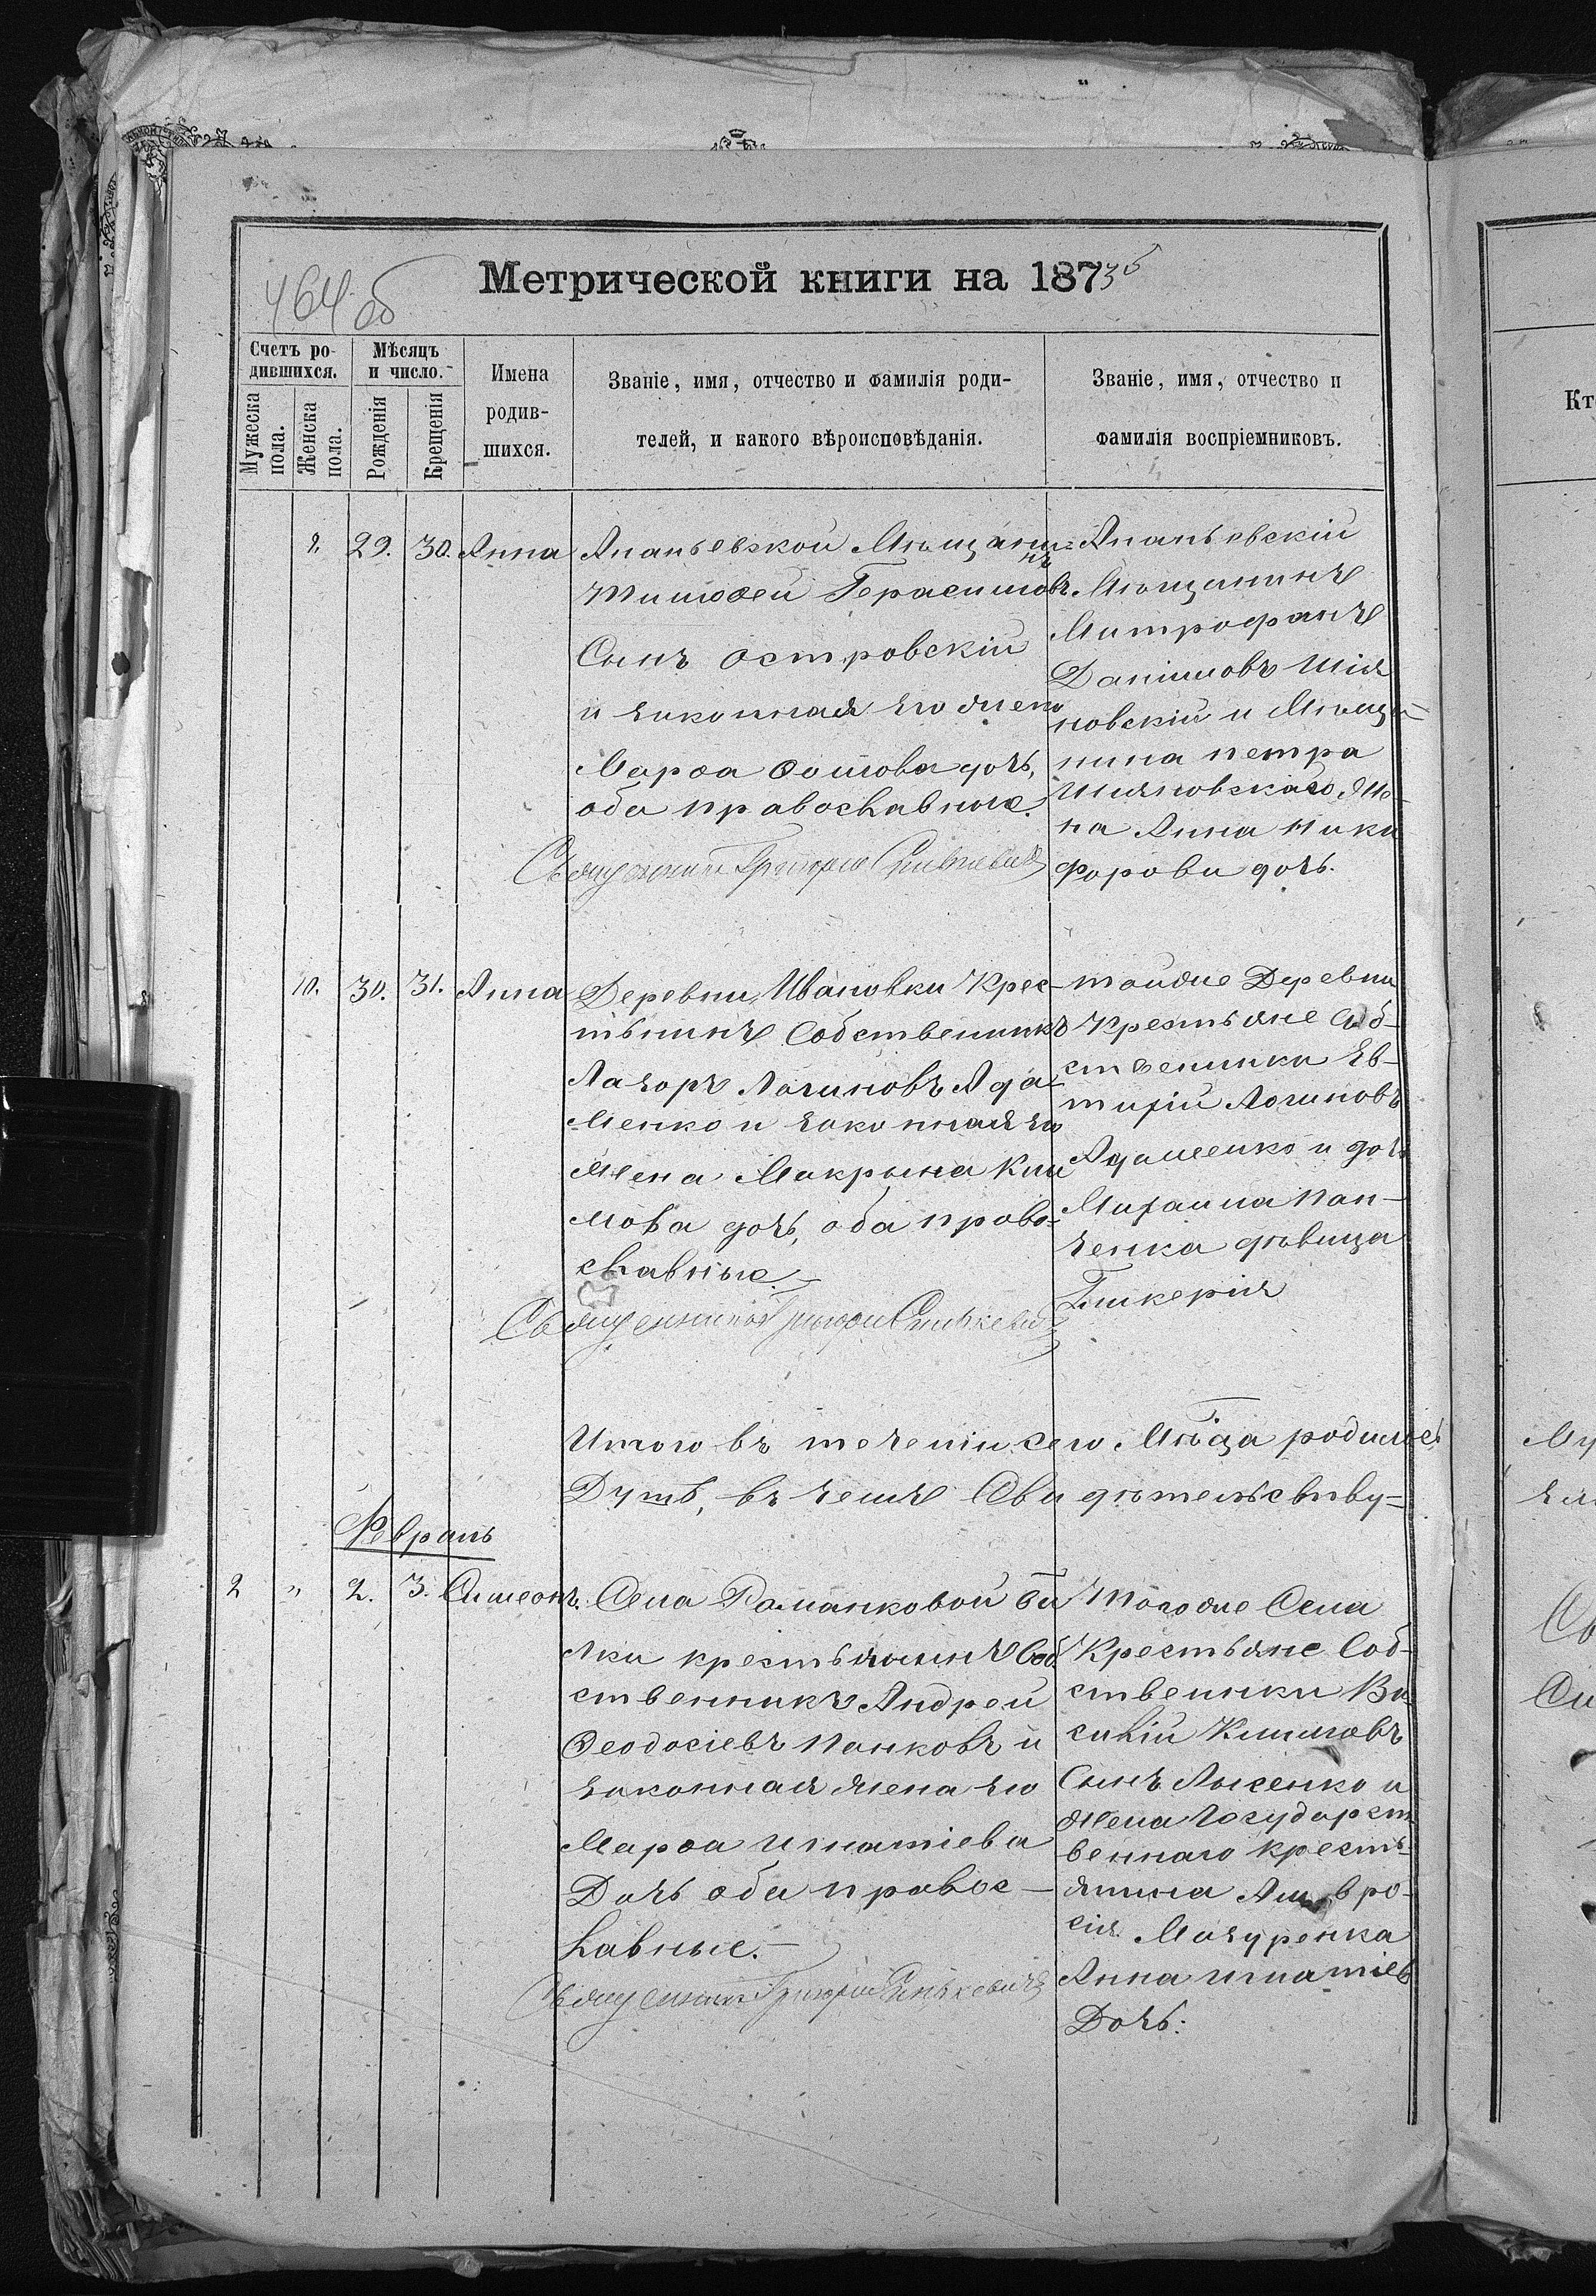 464 об
Метрической книги на 1875
Счетъ ро-
дившихся.
Мужеска
пола.
Женска
пола.
Мѣсяцъ
и число.
Рожденія
Крещенія
Имена
родив-
шихся.
Званіе, имя, отчество и фамилія роди-
телей, и какого вѣроисповѣданія.
Званіе, имя, отчество и
фамилія воспріемниковъ.
Кт
29. 30. Анна
Ананьевской Мѣщани=
нъ
Тимофей Герасимовъ
Сынъ островскій
и законная его жена
Марѳа Фомова дочь,
оба православные.
Священникъ Григорій
Ананьевскій
Мѣщанинъ
Митрофанъ
Даниловъ Шія
новскій и Мѣща=
нина петра
Шияновскаго, Же-
на Анна Ники
форова дочь.
10. 30. 31. Анна
Деревни Ивановки Крес-
тьнинъ Собственникъ
Лазорь Логиновъ Ада-
менко и законная его
Жена Макрына Кли
мова дочь, оба право-
славные.
Священникъ Григорій
тойже Деревни
Крестьяне Соб-
ственники Ев-
тифій Логиновъ
Адаменко и дочь
Михаила Пан-
ченка дѣвица
Гликерія
Итого въ теченіи сего Мѣсца родилось
Душъ, въ чемъ Свидѣтельствву=
Му
Февраль
2 " 2. 3. Симеонъ.
Села Романковой Ба
лки крестьянинъ Соб.
ственникъ Андрей
Феодосіевъ Панковъ и
законная жена его
Марѳа Игнатіева
Дочь оба правос-
лавные.-
Священникъ Григорій
Тогоже Села
Крестьяне Соб-
ственники Ва-
силій Климовъ
Сынъ Лысенко и
Жена Государст
веннаго кресть-
янина Амвро-
сія Мазуренка
Анна Игнатіев
Дочь:
Св